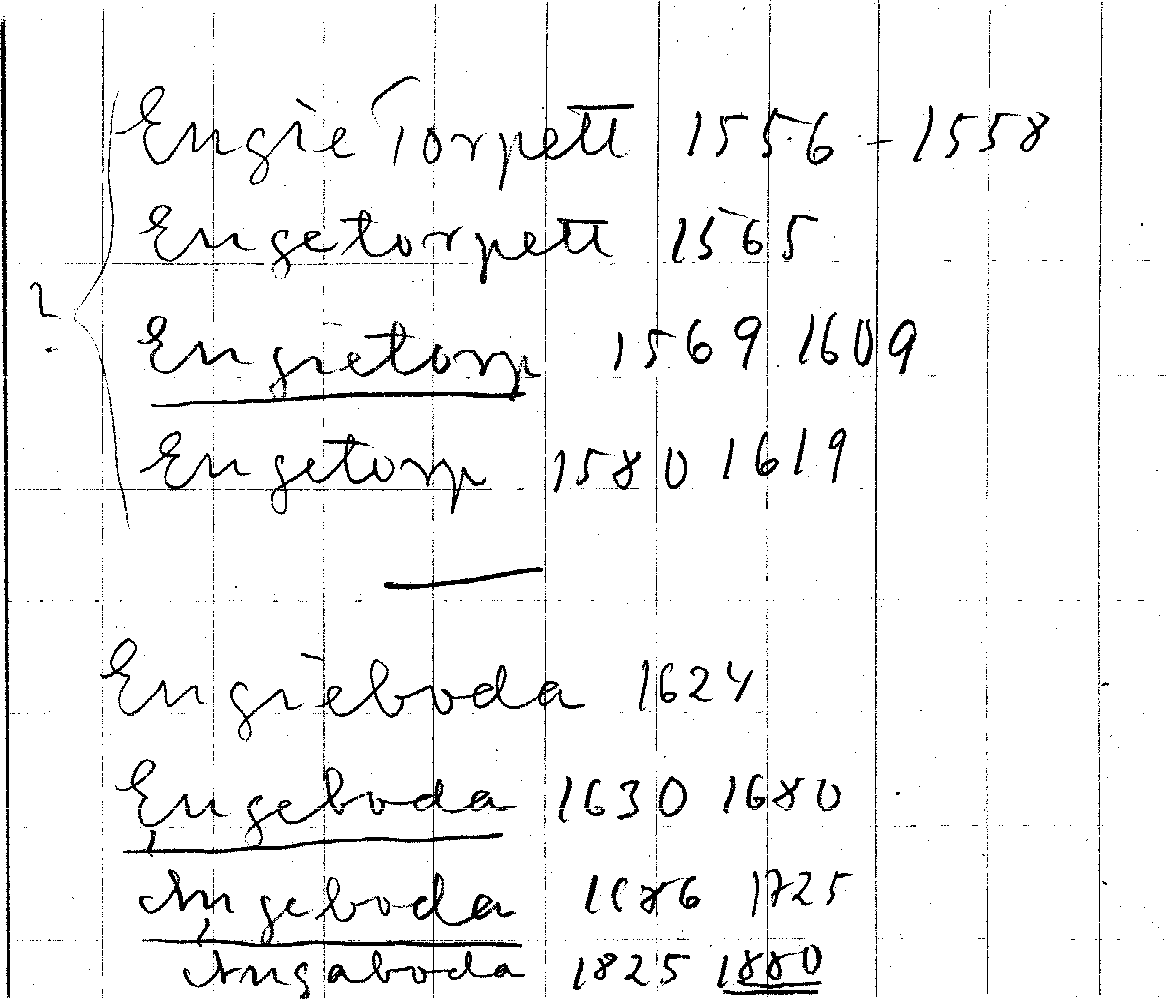 Engie Torpett 1556 - 1558
Engetorpett 1565
?
Engietorp 1569 1609
Engetorp 1580 1619
Engieboda 1624
Engeboda 1630 1680
Ängeboda 1686 1725
Ängaboda 1825 1880